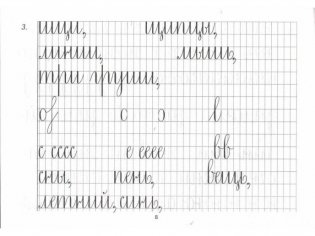 3. ищи, щипцы,
линии, мышь,
три груши,
с ɔ
с сссс е ееее вв
сны, пень, вещь,
летний, синь,